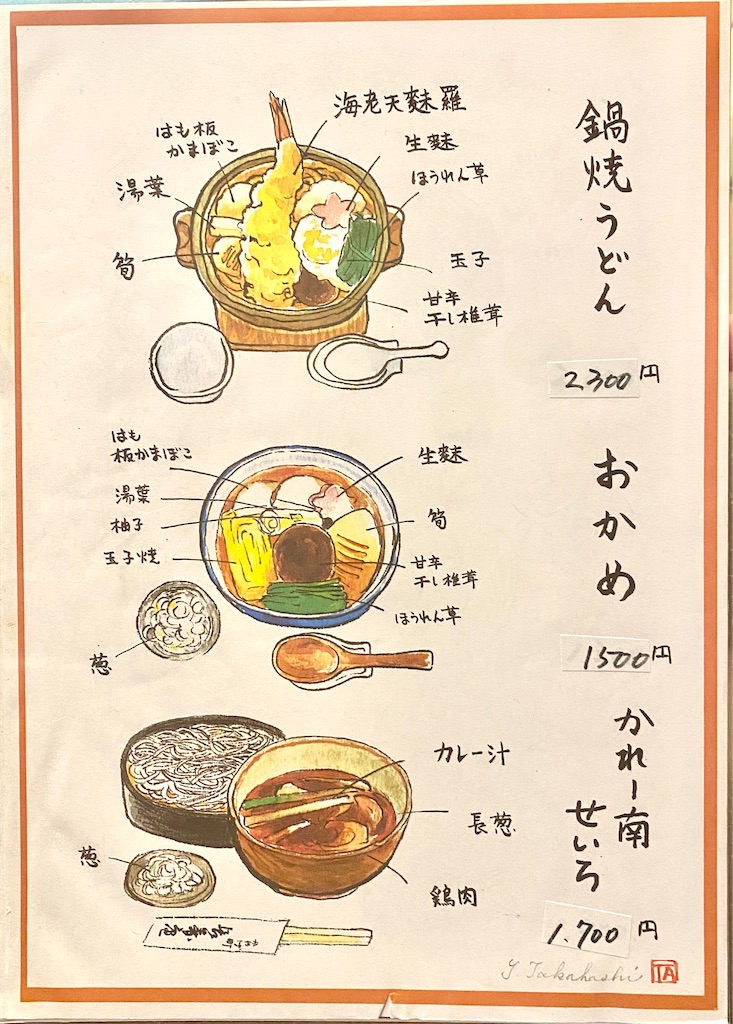 鍋焼うどん
海老天麩羅
はも板
かまぼこ
生麩
ほうれん草
湯葉
筍
玉子
甘辛
干し椎茸
2,300円
おかめ
はも
板かまぼこ
生麩
湯葉
筍
柚子
玉子焼
甘辛
干し椎茸
ほうれん草
葱
1500円
かれー南
せいろ
カレー汁
長葱
葱
鶏肉
1.700円
Y. Takahashi
TA